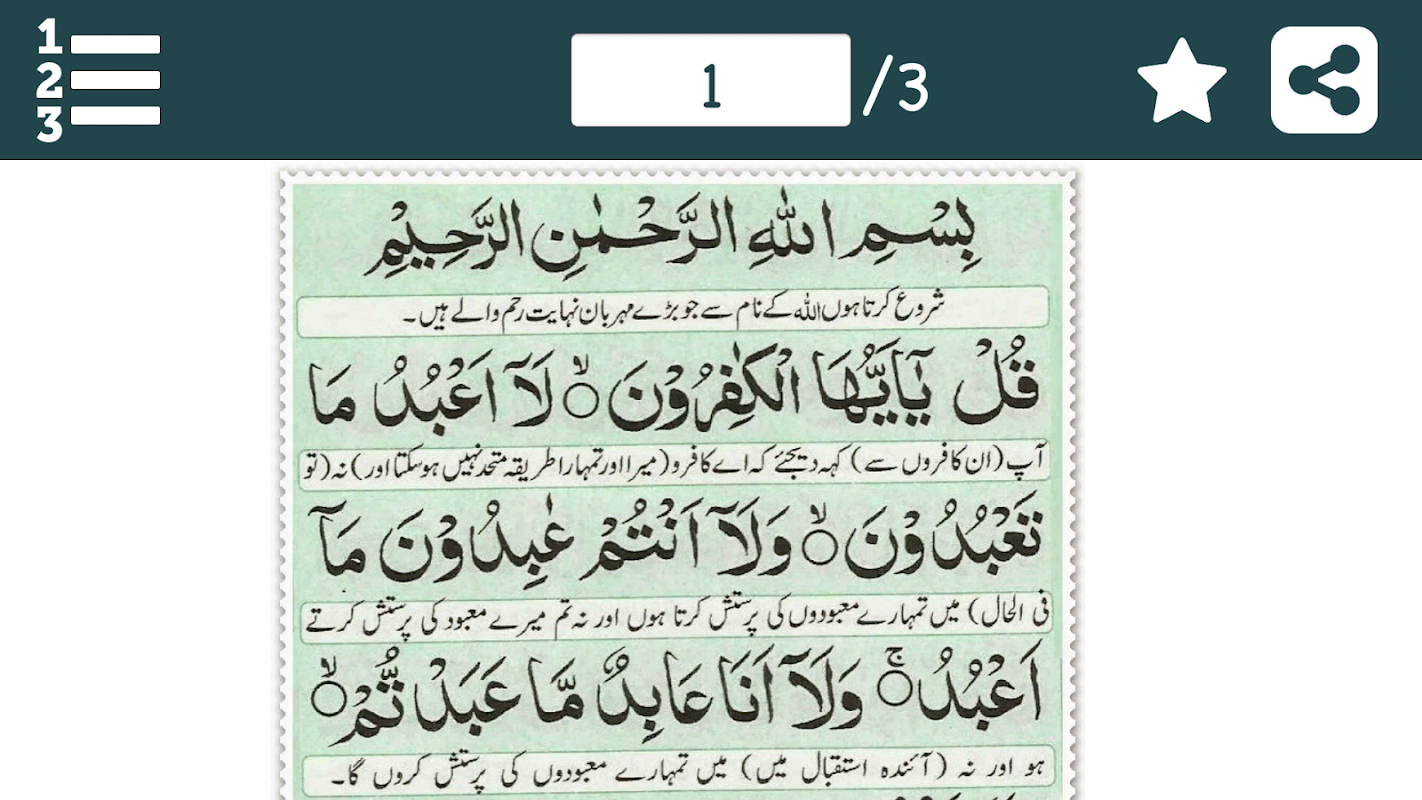 1
2
3
1
/3
بِسْمِ اللهِ الرَّحْمٰنِ الرَّحِيْمِ
شروع کرتا ہوں اللہ کے نام سے جو بڑے مہربان نہایت رحم والے ہیں۔
قُلْ يٰٓاَيُّهَا الْكٰفِرُوْنَ ۙ لَآ اَعْبُدُ مَا
آپ (ان کافروں سے) کہہ دیجئے کہ اے کافرو (میرا اور تمہارا طریقہ متحد نہیں ہو سکتا اور) نہ (تو
تَعْبُدُوْنَ ۙ وَلَآ اَنْتُمْ عٰبِدُوْنَ مَآ
فی الحال) میں تمہارے معبودوں کی پرستش کرتا ہوں اور نہ تم میرے معبود کی پرستش کرتے
اَعْبُدُ ۚ وَلَآ اَنَا عَابِدٌ مَّا عَبَدْتُّمْ ۙ
ہو اور نہ (آئندہ استقبال میں) میں تمہارے معبودوں کی پرستش کروں گا۔